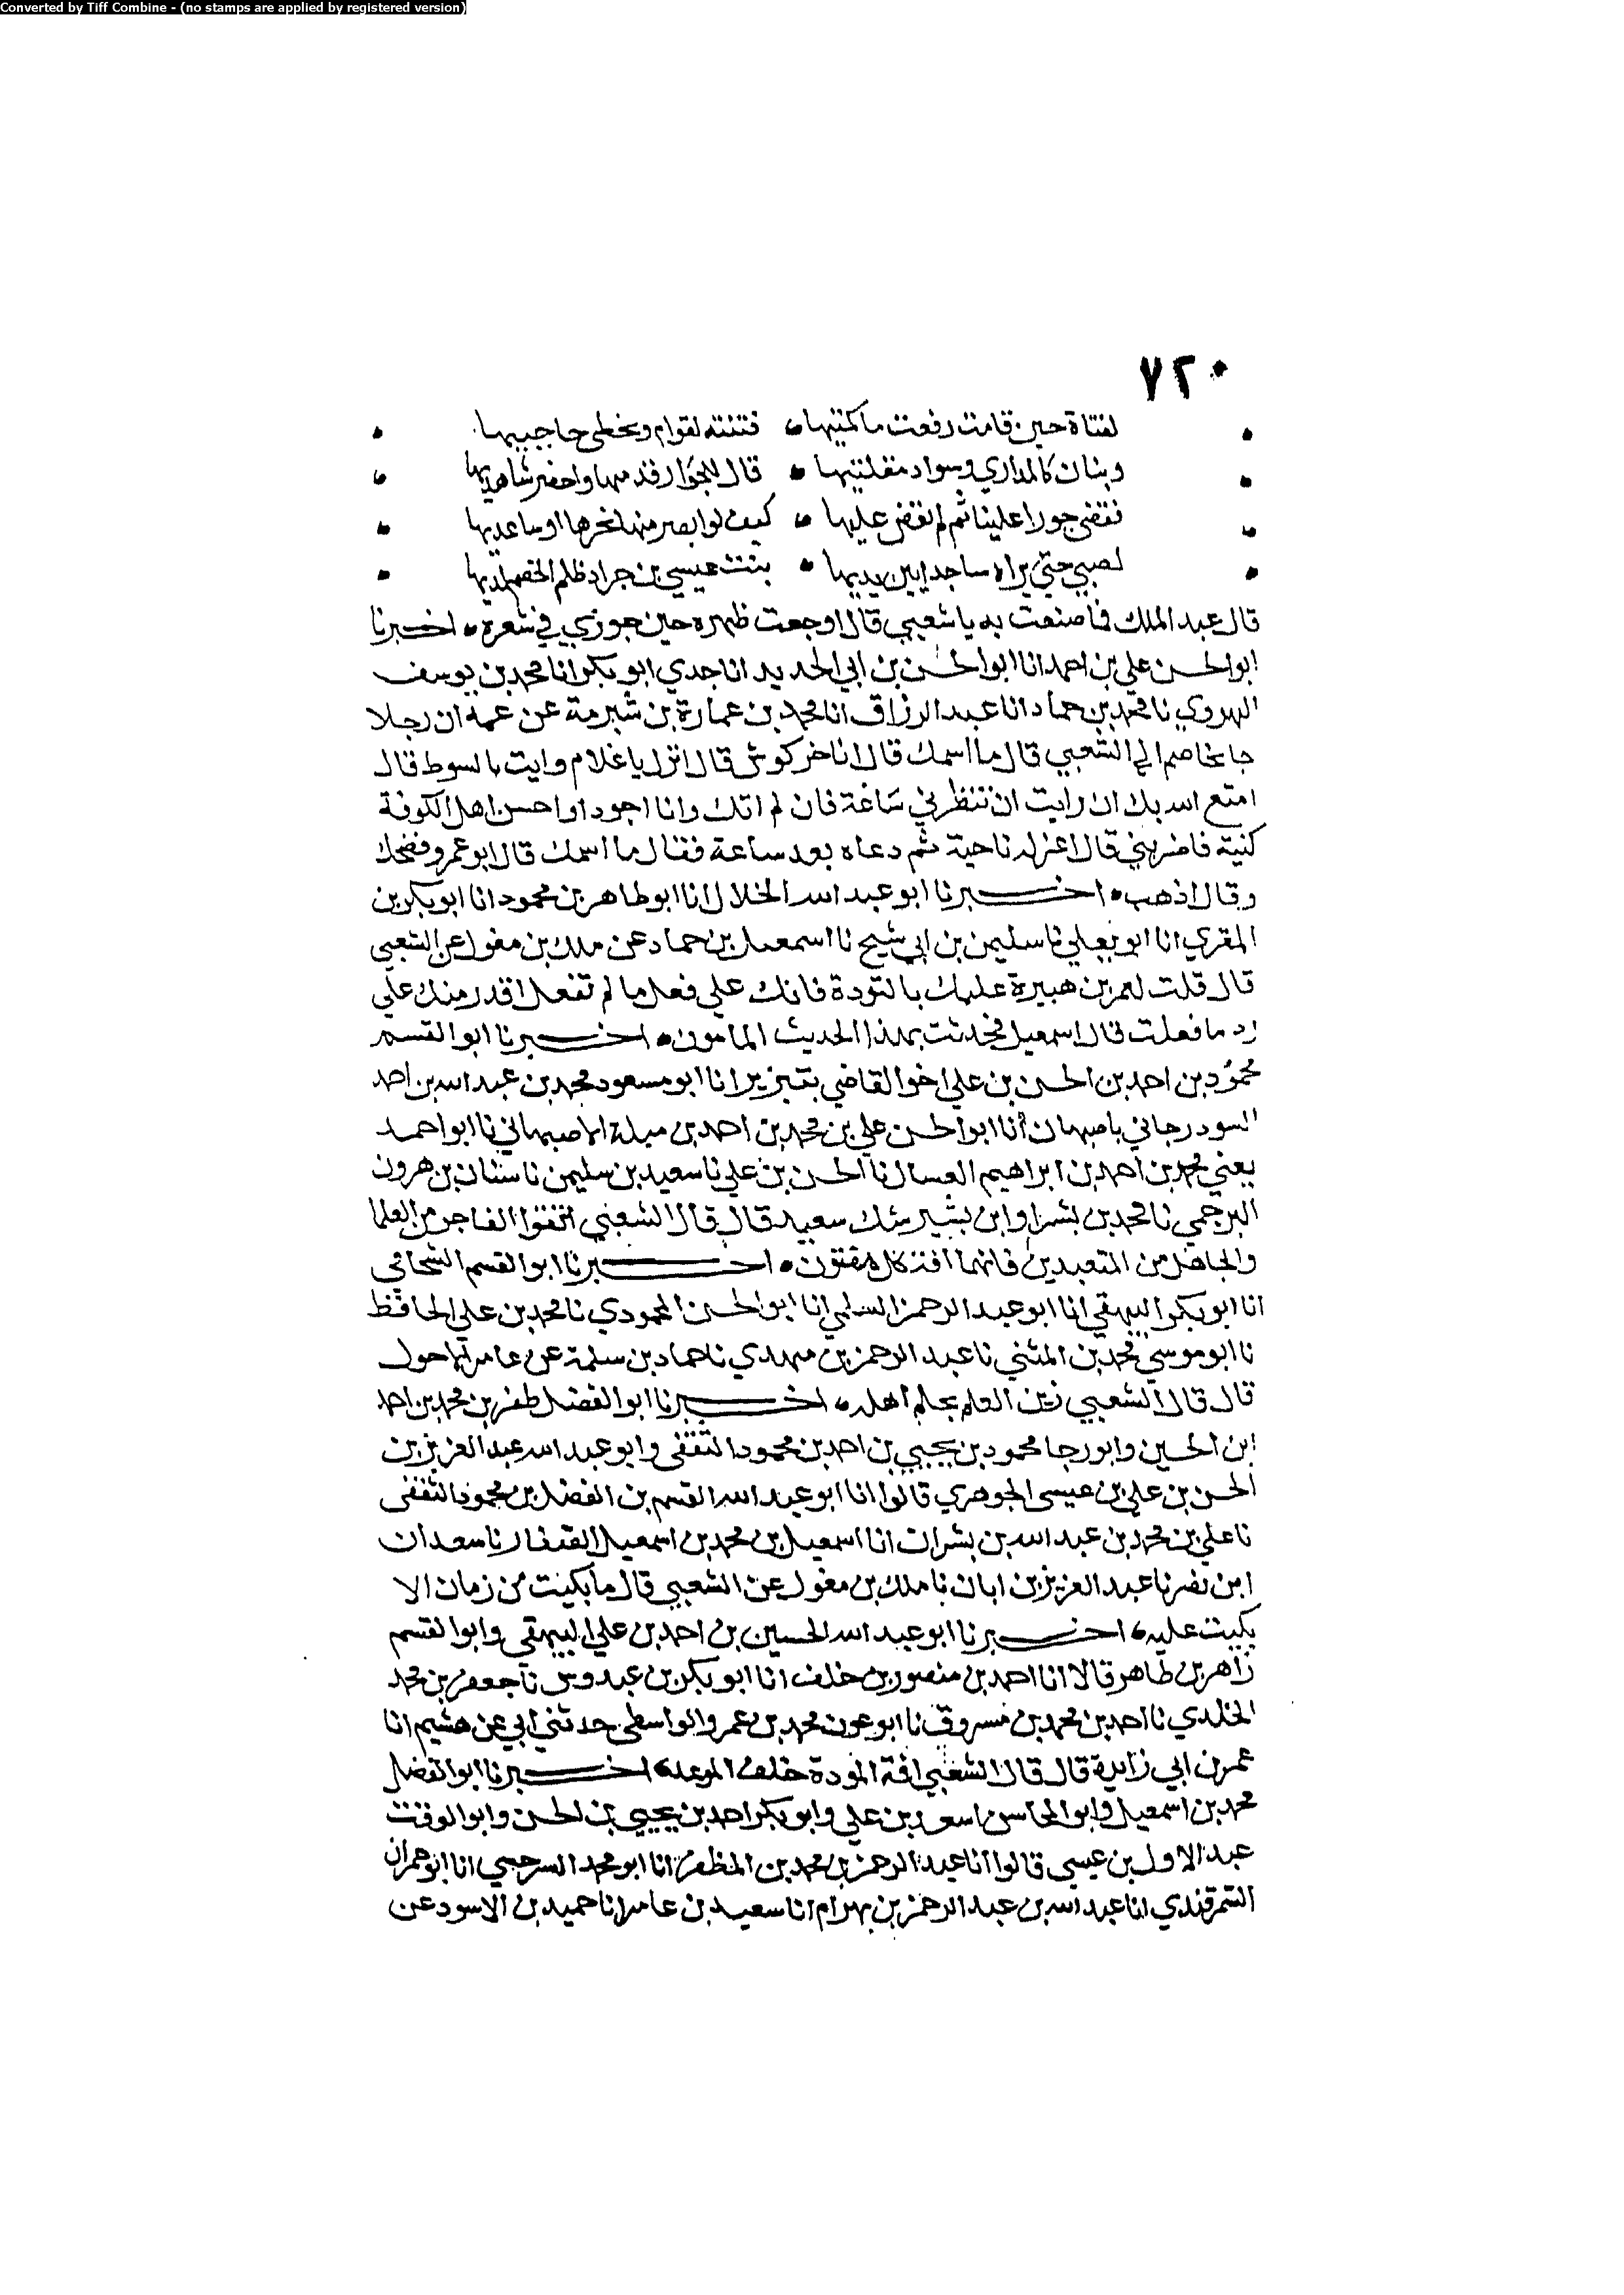 Converted by Tiff Combine - (no stamps are applied by registered version)
٧٢٠
لفتاة حين قامت رفعت ماكمتيها • فتنته لقوام وبخطي حاجبيها
وبنان كالمداري وسواد مقلتيها • قال للجواز قدمها واحضر شاهديها
فقضى جورا علينا ثم لم نقض عليها • كيف لو ابصر منها نحرها او ساعديها
لصبي حتي يراه ساجدا بين يديها • بنت عيسي بن جراد ظلم الخصم لديها
قال عبد الملك فما صنعت به يا شعبي قال اوجعت ظهره حين جوزني في شعره • اخبرنا
ابو الحسن علي بن احمد انا ابو الحسن بن ابي الحديد انا جدي ابو بكر انا محمد بن يوسف
الهروي نا محمد بن حماد انا عبد الرزاق انا محمد بن عمارة بن شبرمة عن عمه ان رجلا
جا يخاصم الي الشعبي قال ما اسمك قال انا خركوش قال انزل يا غلام وايت بالسوط قال
امتع الله بك ان رايت ان تنظرني ساعة فان لم اتك وانا اجود او احسن اهل الكوفة
كنية فاضربني قال اعزله ناحية ثم دعاه بعد ساعة فقال ما اسمك قال ابو عمرو فضحك
وقال اذهب • اخبرنا ابو عبد الله الخلال انا ابو طاهر بن محمود انا ابو بكر بن
المقري انا ابو يعلي نا سليمن بن ابي شيخ نا اسمعيل بن حماد عن ملك بن مغول عن الشعبي
قال قلت لعمر بن هبيرة عليك بالتودة فانك علي فعل ما لم تفعل اقدر منك علي
رد ما فعلت قال اسمعيل فحدثت بهذا الحديث المامون • اخبرنا ابو القسم
محمود بن احمد بن الحسن بن علي اخو القاضي بتبريز انا ابو مسعود محمد بن عبد الله بن احمد
السودرجاني باصبهان أنا ابو الحسن علي بن محمد بن احمد بن ميلة الاصبهاني نا ابو احمد
يعني محمد بن احمد بن ابراهيم العسال نا الحسن بن علي نا سعيد بن سليمن نا سنان بن هرون
البرجمي نا محمد بن بشر او ابن بشير شك سعيد قال قال الشعبي اتقوا الفاجر من العلما
والجاهل من المتعبدين فانهما افة كل مفتون • اخبرنا ابو القسم الشحامي
انا ابو بكر البيهقي انا ابو عبد الرحمن السلمي انا ابو الحسن المحمودي نا محمد بن علي الحافظ
نا ابو موسي محمد بن المثني نا عبد الرحمن بن مهدي نا حماد بن سلمة عن عامر الاحول
قال قال الشعبي زين العلم بحلم اهله • اخبرنا ابو الفضل ظفر بن محمد بن احمد
ابن الحسين وابو رجا محمود بن يحيي بن احمد بن محمود الثقفي وابو عبد الله عبد العزيز بن
الحسن بن علي بن عيسي الجوهري قالوا انا ابو عبد الله القسم بن الفضل بن محمود الثقفي
نا علي بن محمد بن عبد الله بن بشران انا اسمعيل بن محمد بن اسمعيل الصفار نا سعدان
ابن نصر نا عبد العزيز بن ابان نا ملك بن مغول عن الشعبي قال ما بكيت من زمان الا
بكيت عليه • اخبرنا ابو عبد الله الحسين بن احمد بن علي البيهقي وابو القسم
زاهر بن طاهر قالا انا احمد بن منصور بن خلف انا ابو بكر بن عبدوس نا جعفر بن محمد
الخلدي نا احمد بن محمد بن مسروق نا ابو عون محمد بن عمرو الواسطي حدثني ابي عن هشيم انا
عمر بن ابي زايدة قال قال الشعبي افة المودة خلف الموعد • اخبرنا ابو الفضل
محمد بن اسمعيل وابو المحاسن اسعد بن علي وابو بكر احمد بن يحيي بن الحسن وابو الوقت
عبد الاول بن عيسي قالوا انا عبد الرحمن بن محمد بن المظفر انا ابو محمد السرخسي انا ابو عمران
السمرقندي انا عبد الله بن عبد الرحمن بن بهرام انا سعيد بن عامر انا حميد بن الاسود عن